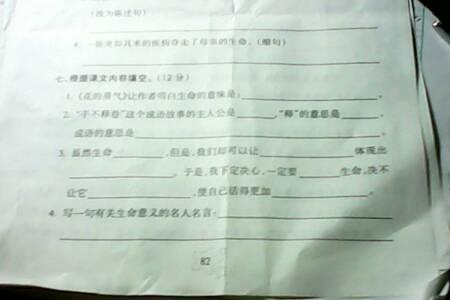 (改为陈述句)
4. 一场突如其来的疾病夺走了母亲的生命。(缩句)
七、根据课文内容填空。(12分)
1. 《花的勇气》让作者明白生命的意味是:____________________。
2. “手不释卷”这个成语故事的主人公是________,“释”的意思是________,
成语的意思是____________________。
3. 虽然生命________,但是,我们却可以让____________体现出
____________。于是,我下定决心,一定要________生命,决不
让它____________,使自己活得更加____________。
4. 写一句有关生命意义的名人名言:____________________
82